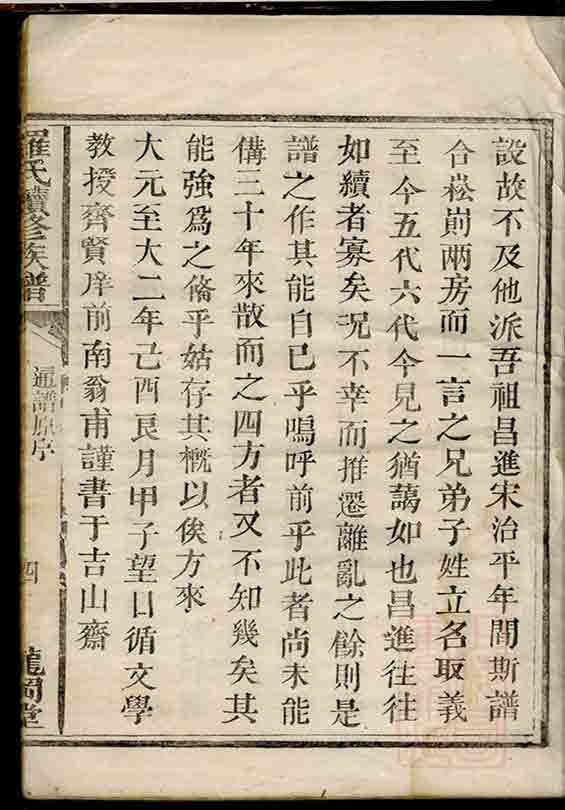 設故不及他派吾祖昌進宋治平年間斯譜
合崧前兩房而一言之兄弟子姓立名取義
至今五代六代今見之猶藹如也昌進往往
如續者寡矣況不幸而推遷離亂之餘則是
譜之作其能自已乎嗚呼前乎此者尚未能
備三十年來散而之四方者又不知幾矣其
能強爲之脩乎姑存其概以俟方來
大元至大二年己酉良月甲子望日循文學
教授齊賢庠前南翁甫謹書于吉山齋
羅氏續修族譜
通譜原序
四
龍岡堂